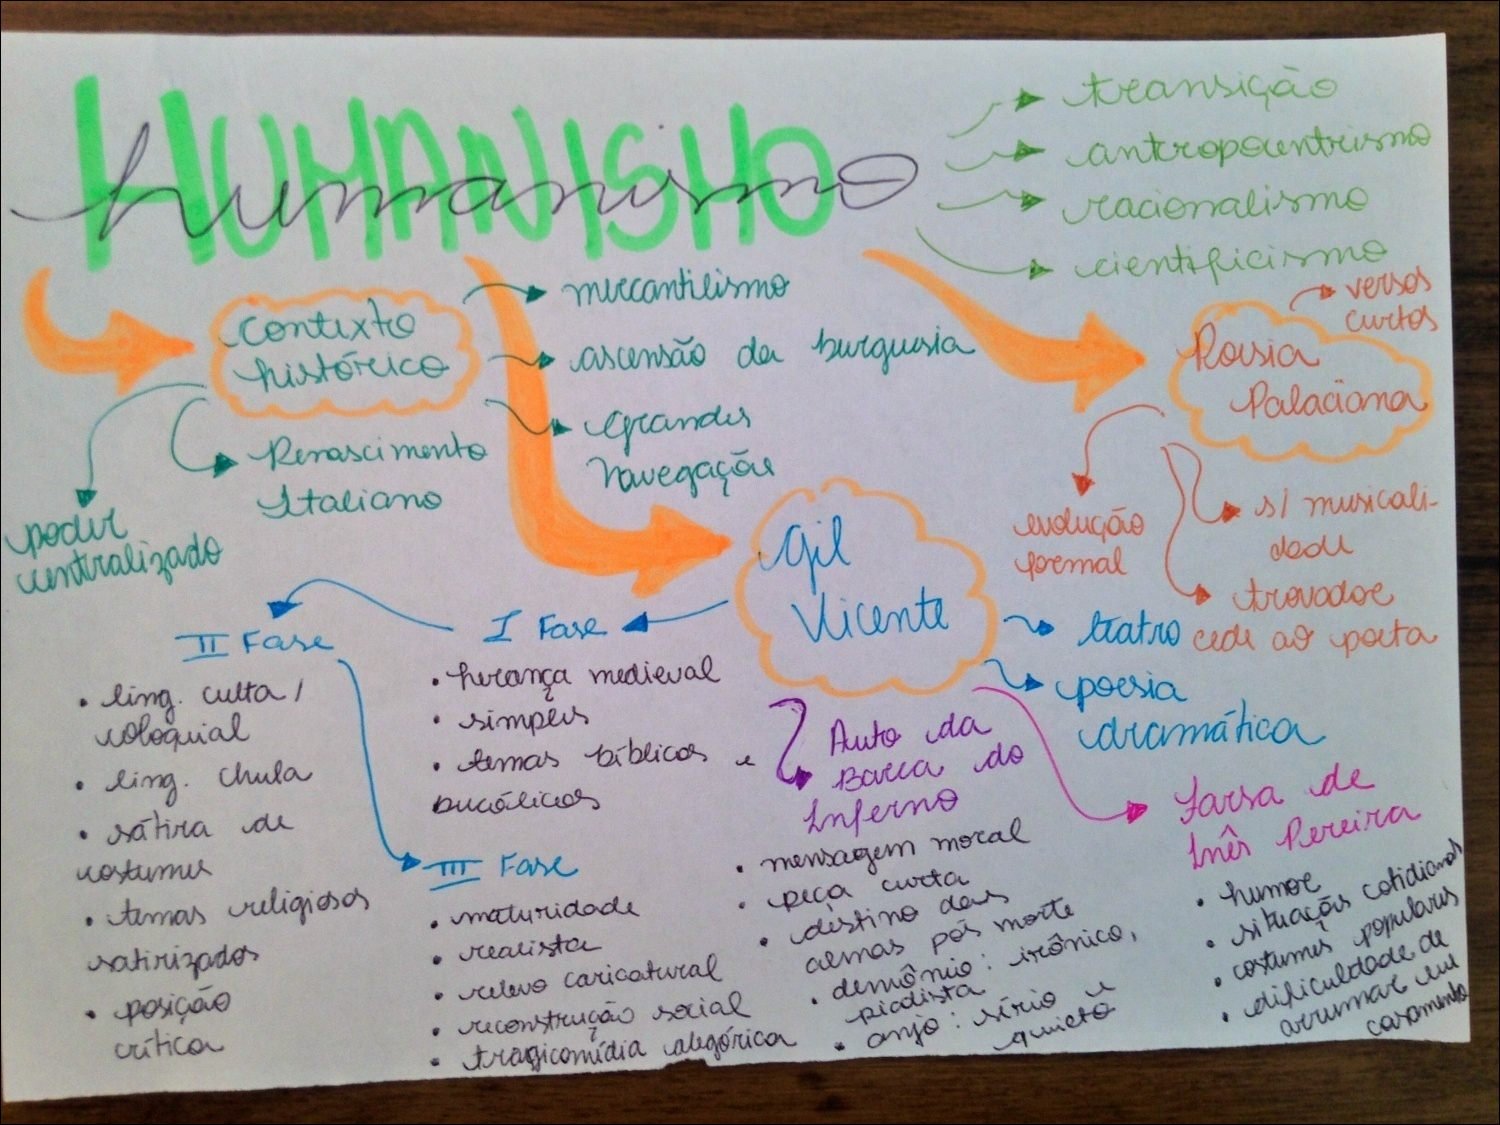 HUMANISMO
humanismo
transição
antropocentrismo
racionalismo
cientificismo
contexto
histórico
mercantilismo
ascensão da burguesia
Grandes
Navegações
Renascimento
Italiano
poder
centralizado
Poesia
Palaciana
versos
curtos
evolução
formal
s/ musicali-
dade
trovador
cede ao poeta
Gil
Vicente
teatro
poesia
dramática
I Fase
• herança medieval
• simples
• temas bíblicos e
bucólicos
II Fase
• ling. culta /
coloquial
• ling. chula
• sátira de
costumes
• temas religiosos
satirizados
• posição
crítica
III Fase
• maturidade
• realista
• relevo caricatural
• reconstrução social
• tragicomídia alegórica
Auto da
Barca do
Inferno
• mensagem moral
• peça curta
• destino das
almas pós morte
• demônio: irônico,
piadista
• anjo: sério e
quieto
Farsa de
Inês Pereira
• humor
• situações cotidianas
• costumes populares
• dificuldade de
arrumar um
casamento